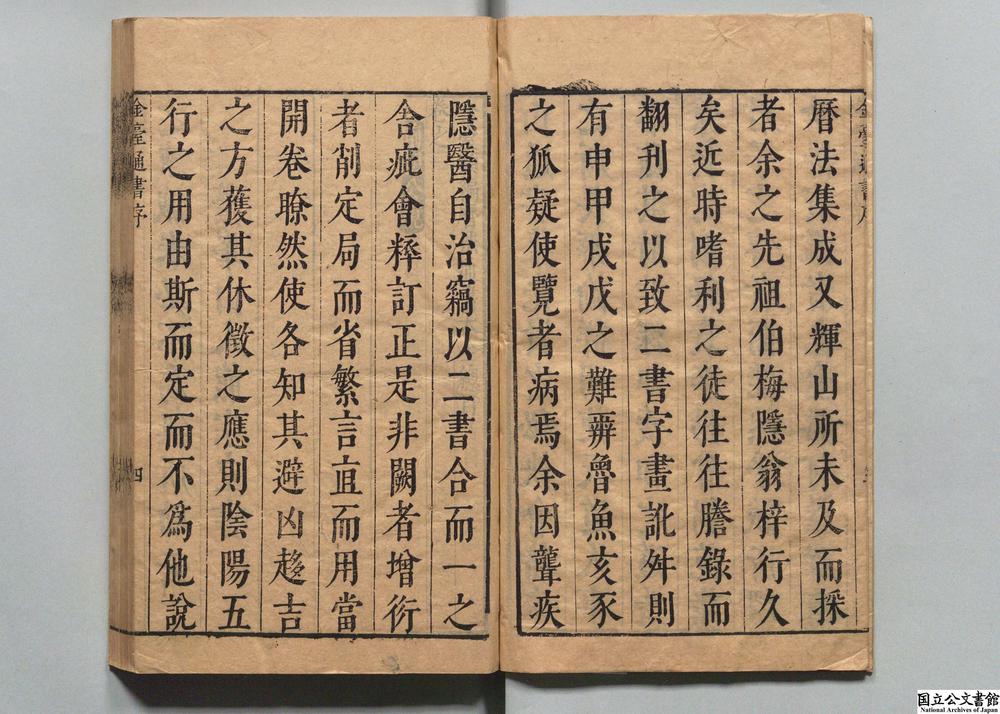 曆法集成又輝山所未及而採
者余之先祖伯梅隱翁梓行久
矣近時嗜利之徒往往謄錄而
翻刊之以致二書字畫訛舛則
有申甲戌戊之難辨魯魚亥豕
之狐疑使覽者病焉余因聾疾
隱醫自治竊以二書合而一之
舍疵會粹訂正是非闕者增衍
者削定局而省繁言直而用當
開卷瞭然使各知其避凶趨吉
之方獲其休徵之應則陰陽五
行之用由斯而定而不爲他說
金臺通書序
四
国立公文書館
National Archives of Japan